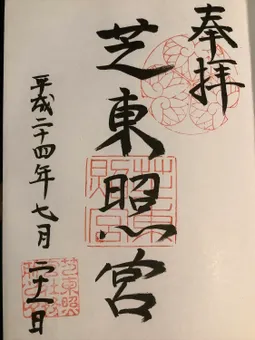 奉拝
芝東照宮
平成二十四年七月二十一日
芝東照宮